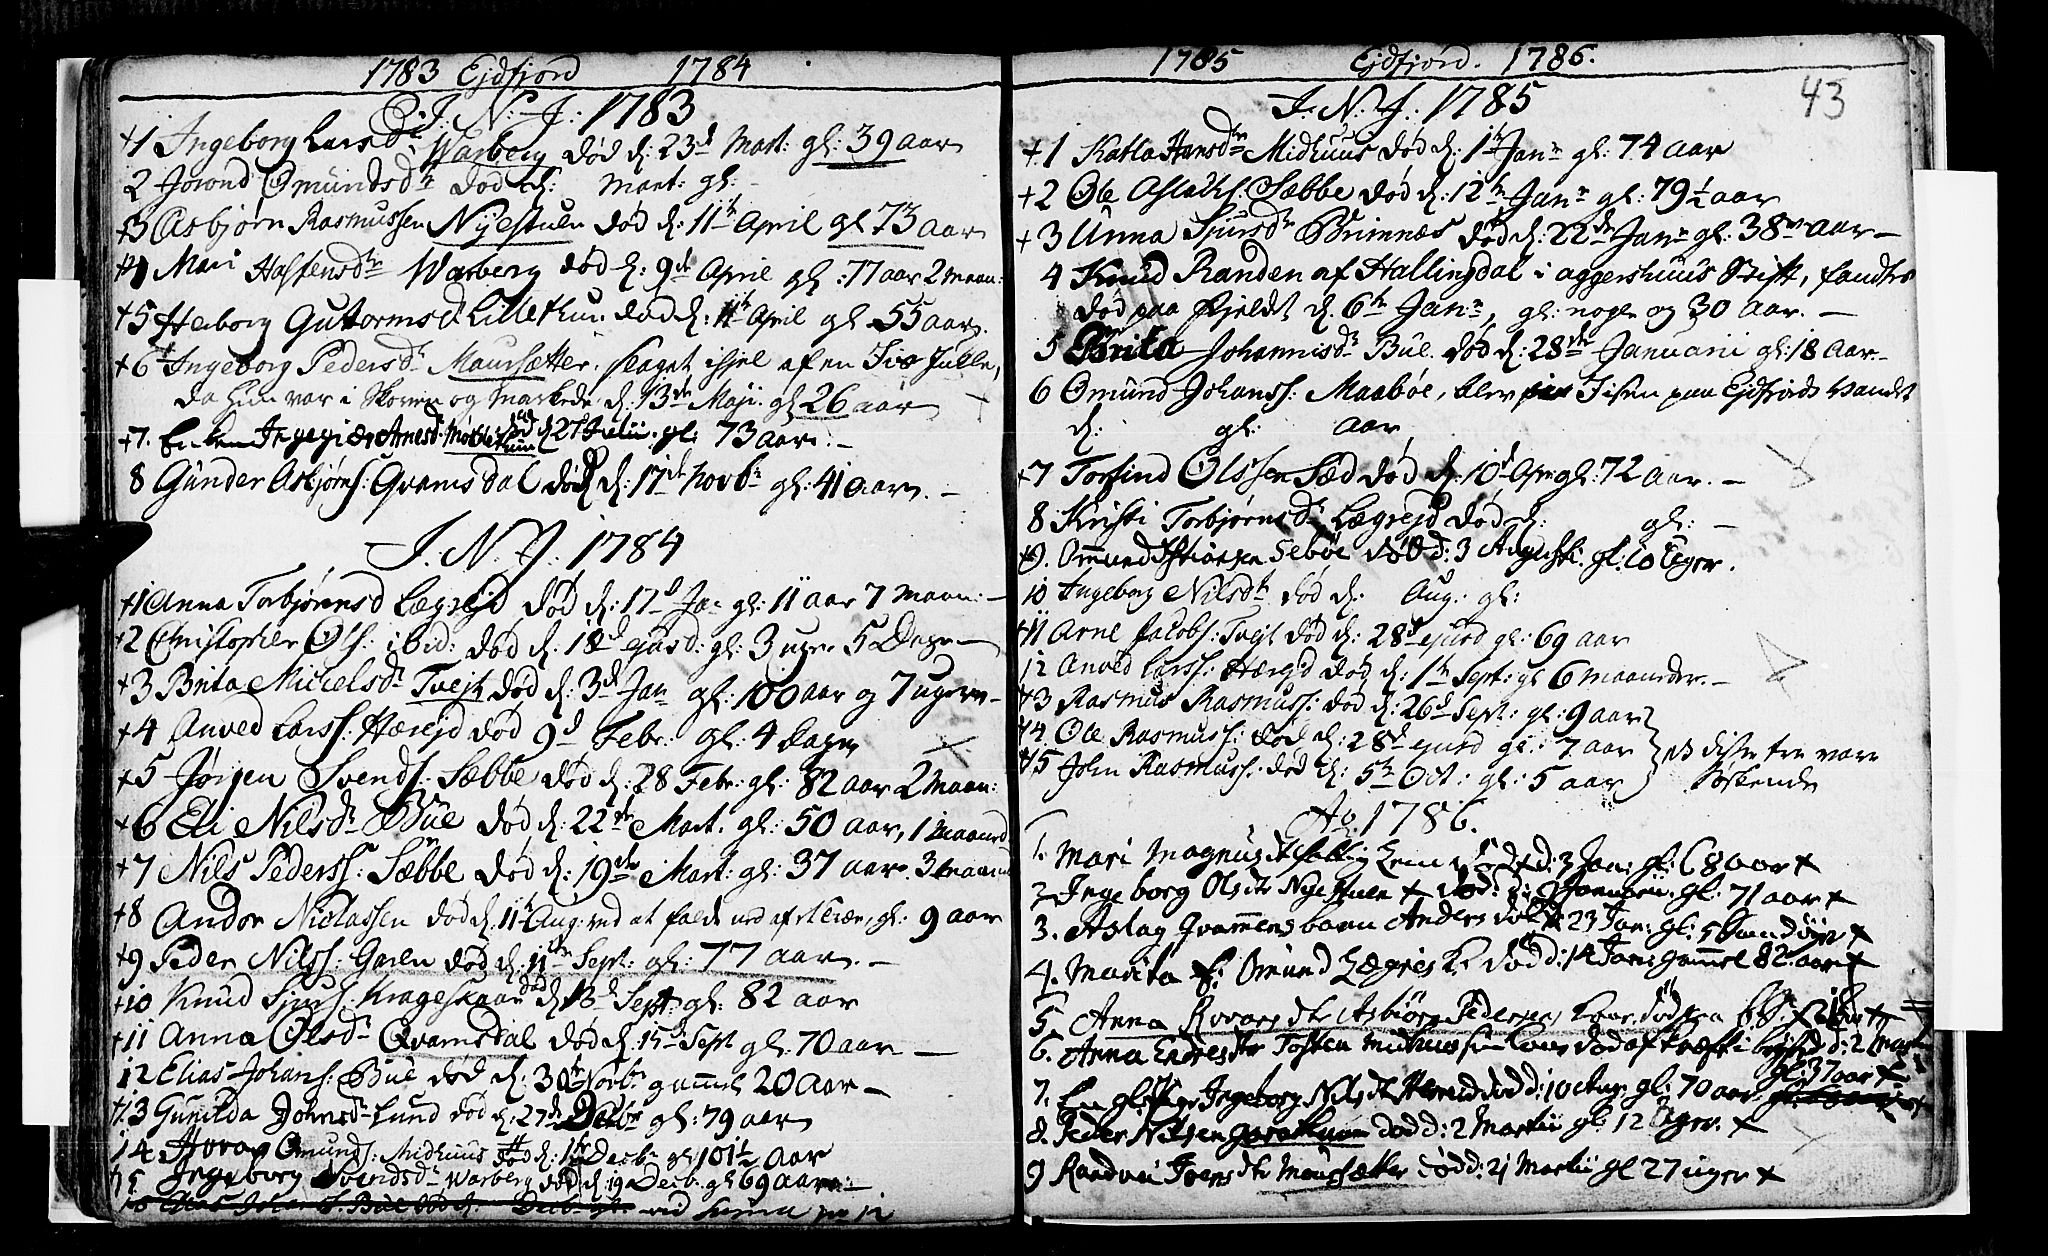 1783 Ejdfjord 1784
J. N. J. 1783
+1 Ingeborg Larsdr. Warberg død d: 23d Mart: gl: 39 aar
2 Jorond Omundsdr død d: Mart: gl: -
+3 Asbjørn Rasmussen Nyestuen død d: 11te April gl 73 aar
+4 Mari Hastensdtr Warberg død d: 9de April gl: 77 aar 2 maan:
+5 Herborg Guttormsd Lillethun død d: 11te April gl 55 aar.
+6 Ingeborg Pedersdr Maursætter, slaget ihjel af en
da hun var i Skoven og markede d: 13de Maji gl 26 aar
+7. Enken død d 27 Julii gl: 73 aar. -
8 Gunder Asbjørns: Qvamsdal død d: 17de Novbr gl: 41 aar. -
J. N. J. 1784
+1 Anna Torbjørnsd Lægrejd død d: 17d Jan gl: 11 aar 7 maan: -
+2 Christopher Ols: ibid: død d: 18d ejusd: gl: 3 uger 5 Dage
+3 Brita Michelsdr Tvejt død d: 3d Jan gl: 100 aar og 7 uger -
+4 Anved Larss: Hærejd død 9d Febr: gl: 4 dage
+5 Jørgen Svends: Sæbbe død d: 28 Febr: gl: 82 aar 2 maan:
+6 Eli Nilsdr Bue død d: 22de Mart. gl: 50 aar, 1 maaned
+7 Nils Pederss: Sæbbe død d: 19de Mart: gl: 37 aar. 3 maaned
+8 Andor Niclassen død d: 11te Aug: ved at falde ned af et træ, gl: 9 aar
+9 Peder Nilss: Garen død d: 11te Sept: gl: 77 aar. -
+10 Knud Sjurs: Krageskaar død d 13d Sept: gl: 82 aar
+11 Anna Olsdr Qvamsdal død d: 15d Sept gl: 70 aar -
12 Elias Johans: Bue død d: 30te Novbr gammel 20 aar -
+13 Gunilda Johnsdr Lund død d: 27de Decbr gl: 79 aar
14 Omunds: Midhuus død d: Decbr gl 101½ aar
+15 Ingeborg Svendsdr Warberg død d: 19 Decb: gl 69 aar -
Elias Johans. Bue død d: Decb gl: vid supra No 12
1785 Ejdfjord. 1786.
43
J. N. J. 1785
+1 Katla Hansdtr Midhuus død d: 1te Janr gl: 74 aar
+2 Ole Aslachs. Sæbbe død d: 12te Janr gl: 79½ aar
+3 Anna Sjursdr Brimnæs død d: 22de Janr gl: 38 aar -
4 Knud Randen af Hallingdal i aggershuus Stift, fandtes
død paa fjeldet d. 6te Janr, gl: nogle og 30 aar. -
5 Brita Johannisdr Bue. død d: 28de Januarii gl: 18 aar -
6 Omund Johanss: Maabøe, blev under Jisen paa Ejdfiords Vandet
d: gl: aar
+7 Torfind Olssen Sæd død d: 10d Apr gl: 72 aar. -
8 Kristi Torbjørnsdr Lægrejd død d: gl: -
+9. Ommund Sebøe død d: 3 Augusti. gl: 10 Uger.
10 Ingeborg Nilsdr død d: Aug: gl:
+11 Arne Jacobs: Tvejt død d: 28d ejusd gl: 69 aar
12 Anved Larss: Hærejd død d: 1te Sept: gl 6 maaneder. -
+13 Rasmus Rasmuss: død d: 26d Sept: gl: 9 aar
+14 Ole Rasmuss: død d: 28d ejusd gl: 7 aar
+15 John Rasmuss: død d: 5te Oct: gl: 5 aar
NB disse tre vare
Søskende
Ao. 1786.
1. Mari Magnusdtr død d: 3 Jan: gl: 68 aar +
2. Ingeborg Olsdtr Nyestuen + død: d: Januarii. gl: 71 aar +
3. Aslag Qvammens barn Anders død d: 23 Jan: gl: 5 Samdøgr +
4. Marita Omund Lægreids K. død d: 14 Jan: gammel 82 aar +
5. Anna Roarsdtr Asbiørn Pedersen Kone død
6. Anna Endresdtr Tosten Midhuus sin Kone død af Kræft i brystet d: 2 Martii
gl: 37 aar +
7. En gl: Pige Ingeborg Nilsdtr Hereid død d: 10 gl: 70 aar
8. Peder Nilsen Garethuun død d: 2 Martii gl: 12 Uger. +
9 Randvei Iversdtr Maursætter død d: 21 Martii gl 27 uger +